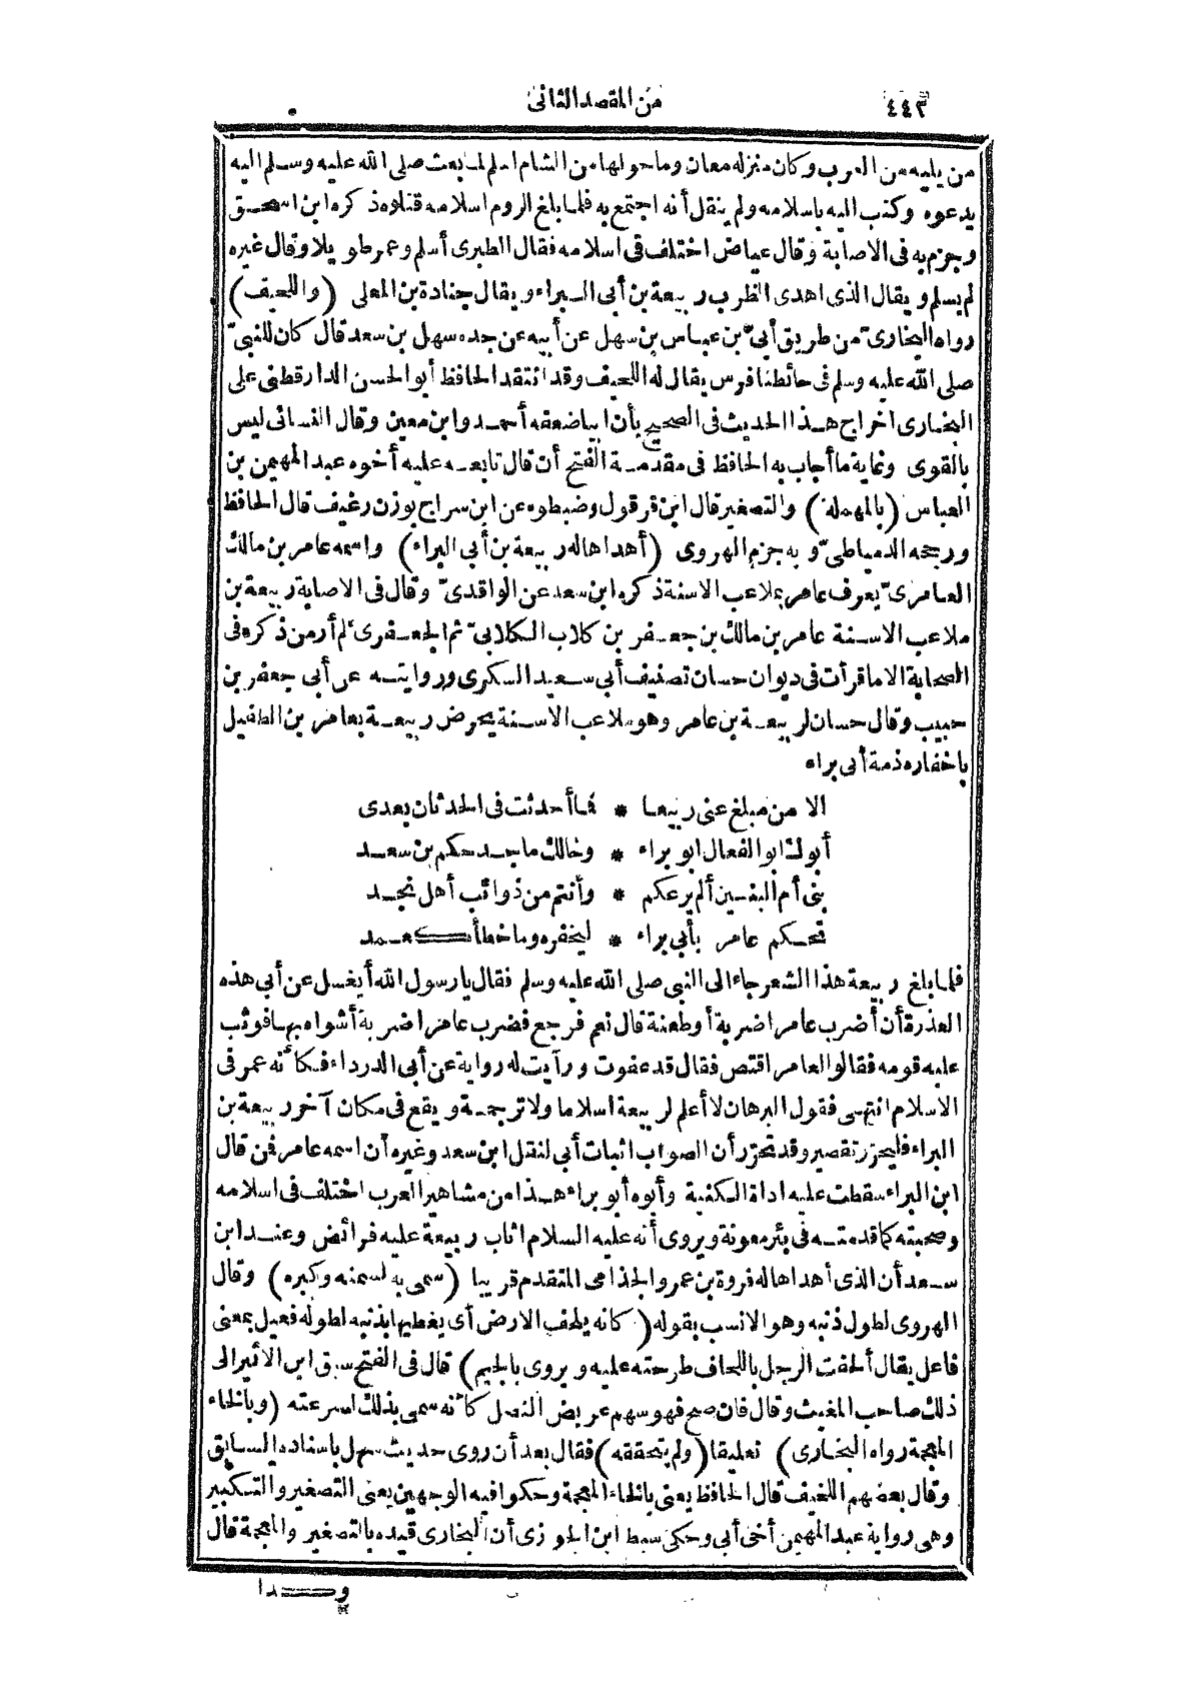 ٤٤٣
من المقصد الثانى
من يليه من العرب وكان منزله معان وما حولها من الشام اسلم لما بعث صلى الله عليه وسلم اليه
يدعوه وكتب اليه باسلامه ولم ينقل أنه اجتمع به فلما بلغ الروم اسلامه قتلاوه ذكره ابن اسحق
وجزم به فى الاصابة وقال عياض اختلف فى اسلامه فقال الطبرى أسلم وعمر طويلا وقال غيره
لم يسلم ويقال الذى اهدى الظرب ربيعة بن أبى البراء ويقال جنادة بن المعلى (واللحيف)
رواه البخارى من طريق أبىّ بن عباس بن سهل عن أبيه عن جده سهل بن سعد قال كان للنبىّ
صلى الله عليه وسلم فى حائطنا فرس يقال له اللحيف وقد انتقد الحافظ أبو الحسن الدارقطنى على
البخارى اخراج هذا الحديث فى الصحيح بأن ابيا ضعفه أحمد وابن معين وقال النسائى ليس
بالقوى وغاية ما أجاب به الحافظ فى مقدمة الفتح أن قال تابعه عليه أخوه عبد المهيمن بن
العباس (بالمهملة) والتصغير قال ابن قرقول وضبطوه عن ابن سراج بوزن رغيف قال الحافظ
ورجحه الدمياطىّ وبه جزم الهروى (أهداها له ربيعة بن أبى البراء) واسمه عامر بن مالك
العامرىّ يعرف عامر بملاعب الاسنة ذكره ابن سعد عن الواقدىّ وقال فى الاصابة ربيعة بن
ملاعب الاسنة عامر بن مالك بن جعفر بن كلاب الكلابىّ ثم الجعفرى لم أر من ذكره فى
الصحابة الا ما قرأت فى ديوان حسان تصنيف أبى سعيد السكرى وروايته عن أبى جعفر بن
حبيب وقال حسان لربيعة بن عامر وهو ملاعب الاسنة يحرض ربيعة بعامر بن الطفيل
باخفاره ذمة أبى براء
الا من مبلغ عنى ربيعا * فما أحدثت فى الحدثان بعدى
أبوك ابو الفعال ابو براء * وخالك ماجد حكم بن سعد
بنى أم البنين ألم يرعكم * وأنتم من ذوائب أهل نجد
تحكم عامر بأبى براء * ليخفره وما خطأ كعمد
فلما بلغ ربيعة هذا الشعر جاء الى النبى صلى الله عليه وسلم فقال يا رسول الله أيغسل عن أبى هذه
العذرة أن أضرب عامرا ضربة أو طعنة قال نعم فرجع فضرب عامرا ضربة أشواه بها فوثب
عليه قومه فقالوا لعامر اقتص فقال قد عفوت ورأيت له رواية عن أبى الدرداء فكأنه عمر فى
الاسلام انتهى فقول البرهان لا أعلم لربيعة اسلاما ولا ترجمة ويقع فى مكان آخر ربيعة بن
البراء فليحرر تقصير وقد تحرر أن الصواب اثبات أبى لنقل ابن سعد وغيره أن اسمه عامر فمن قال
ابن البراء سقطت عليه اداة الكنية وأبوه أبو براء هذا من مشاهير العرب اختلف فى اسلامه
وصحبته كما قدمته فى بئر معونة ويروى أنه عليه السلام اثاب ربيعة عليه فرائض وعند ابن
سعد أن الذى أهداها له فروة بن عمرو الجذامى المتقدم قريبا (سمى به لسمنه وكبره) وقال
الهروى لطول ذنبه وهو الانسب بقوله (كانه يلحف الارض أى يغطيها بذنبه لطوله فعيل بمعنى
فاعل يقال ألحفت الرجل باللحاف طرحته عليه ويروى بالجيم) قال فى الفتح سبق ابن الأثير الى
ذلك صاحب المغيث وقال فان صح فهو سهم عريض النصل كأنه سمى بذلك لسرعته (وبالخاء
المعجمة رواه البخارى) تعليقا (ولم يتحققه) فقال بعد أن روى حديث سهل باسناده السابق
وقال بعضهم اللخيف قال الحافظ يعنى بالخاء المعجمة وحكوا فيه الوجهين يعنى التصغير والتكبير
وهى رواية عبد المهيمن أخى أبى وحكى سبط ابن الجوزى أن البخارى قيده بالتصغير والمعجمة قال
وكذا